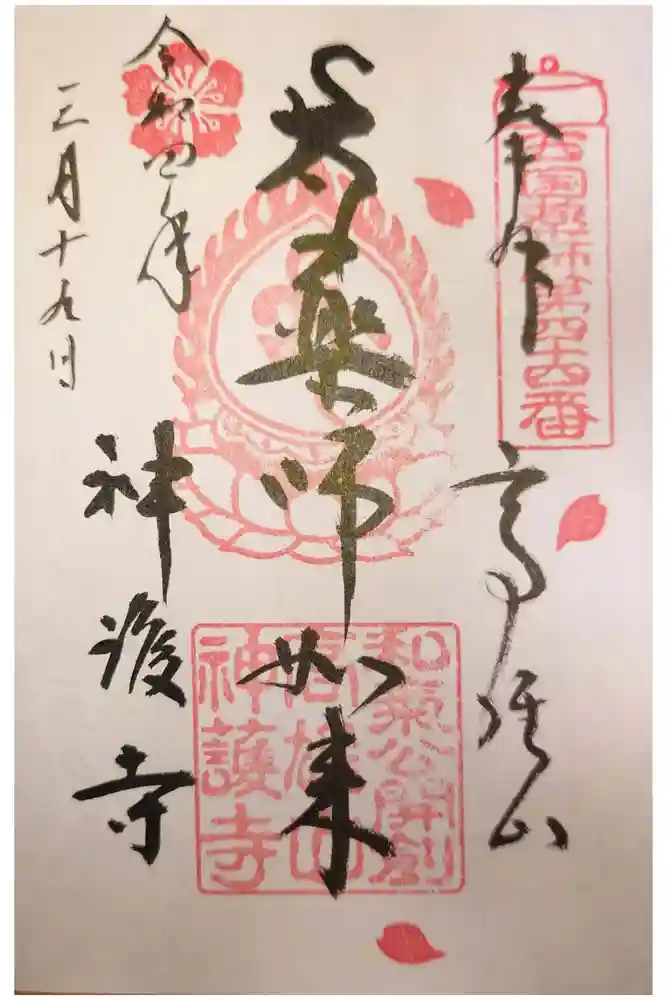 奉拝
西国薬師第四十四番
高雄山
薬師如来
和氣公開創
高雄山
神護寺
神護寺
令和四年
三月十九日